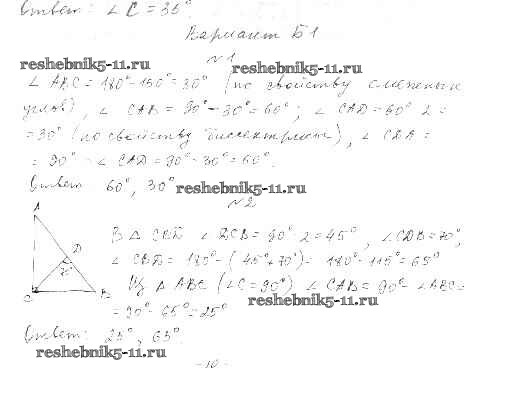 Ответ: ∠C = 35°.
Вариант Б1
№1
reshebnik5-11.ru reshebnik5-11.ru
∠ABC = 180° - 150° = 30° (по свойству смежных
углов), ∠CAB = 90° - 30° = 60°; ∠CAD = 60° : 2 =
= 30° (по свойству биссектрисы), ∠CDA =
= 90° - ∠CAD = 90° - 30° = 60°.
Ответ: 60°, 30° reshebnik5-11.ru
№2
A
D
70°
C
B
В △ CBD ∠DCB = 90° : 2 = 45°, ∠CDB = 70°,
∠CBD = 180° - (45° + 70°) = 180° - 115° = 65°
Из △ ABC (∠C = 90°) ∠CAB = 90° - ∠ABC =
reshebnik5-11.ru
= 90° - 65° = 25°
Ответ: 25°, 65°.
reshebnik5-11.ru
- 10 -